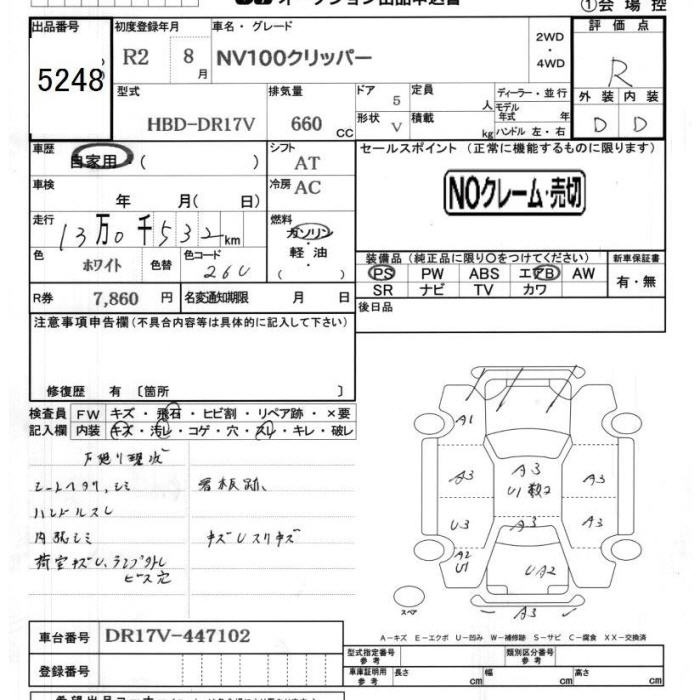 オークション出品申込書
①会 場 控
出品番号
5248
初度登録年月
R2 8月
車名・グレード
NV100クリッパー
2WD
・
4WD
評 価 点
R
外 装 内 装
D D
型式
HBD-DR17V
排気量
660 CC
ドア 5
形状 V
定員 人
積載 kg
ディーラー・並行
モデル年式 年式
ハンドル 左・右
車歴
自家用・( )
シフト AT
車検
年 月( 日)
冷房 AC
走行
13万0千532km
燃料
ガソリン
・
軽 油
( )
色
ホワイト
色替
色コード
26U
R券 7,860 円
名変通知期限 月 日
セールスポイント (正常に機能するものに限ります)
NOクレーム・売切
装備品(純正品に限り〇をつけてください)
PS PW ABS エアB AW
SR ナビ TV カワ
新車保証書
有・無
後日品
注意事項申告欄(不具合内容等は具体的に記入して下さい)
修復歴 有 〔箇所 〕
検査員
記入欄
FW キズ・飛石・ヒビ割・リペア跡・×要
内装 キズ・汚レ・コゲ・穴・スレ・キレ・破レ
シートヘタリ、シミ
看板跡、
ハンドルスレ
内張シミ
キズUスリキズ
荷室キズU、ランプ外し
ビス穴
A1
A3
A3
A3
U1数ヶ
U3
A3
A3
A2
U1
UA2
A3
スペア
A-キズ E-エクボ U-凹み W-補修跡 S-サビ C-腐食 XX-交換済
車台番号 DR17V-447102
登録番号
型式指定番号
参 考
類別区分番号
参 考
車庫証明用
参 考
長さ cm
幅 cm
高さ cm